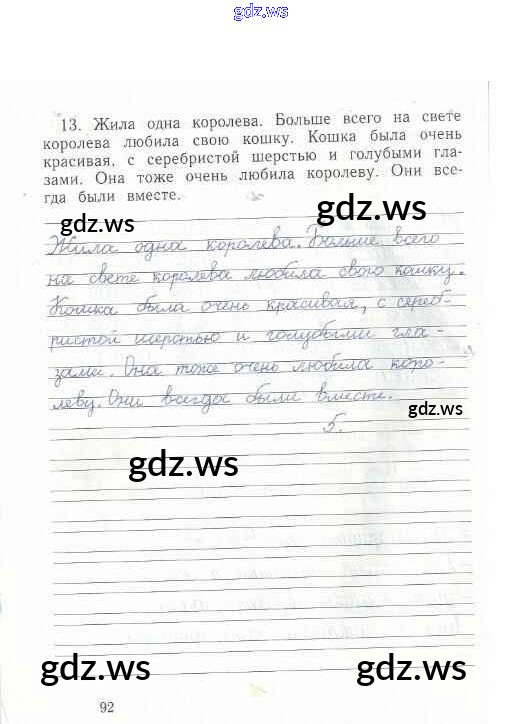 gdz.ws
13. Жила одна королева. Больше всего на свете
королева любила свою кошку. Кошка была очень
красивая, с серебристой шерстью и голубыми гла-
зами. Она тоже очень любила королеву. Они все-
гда были вместе.
gdz.ws
gdz.ws
Жила одна королева. Больше всего
на свете королева любила свою кошку.
Кошка была очень красивая, с сереб-
ристой шерстью и голубыми гла-
зами. Она тоже очень любила коро-
леву. Они всегда были вместе.
gdz.ws
5.
gdz.ws
gdz.ws
gdz.ws
92